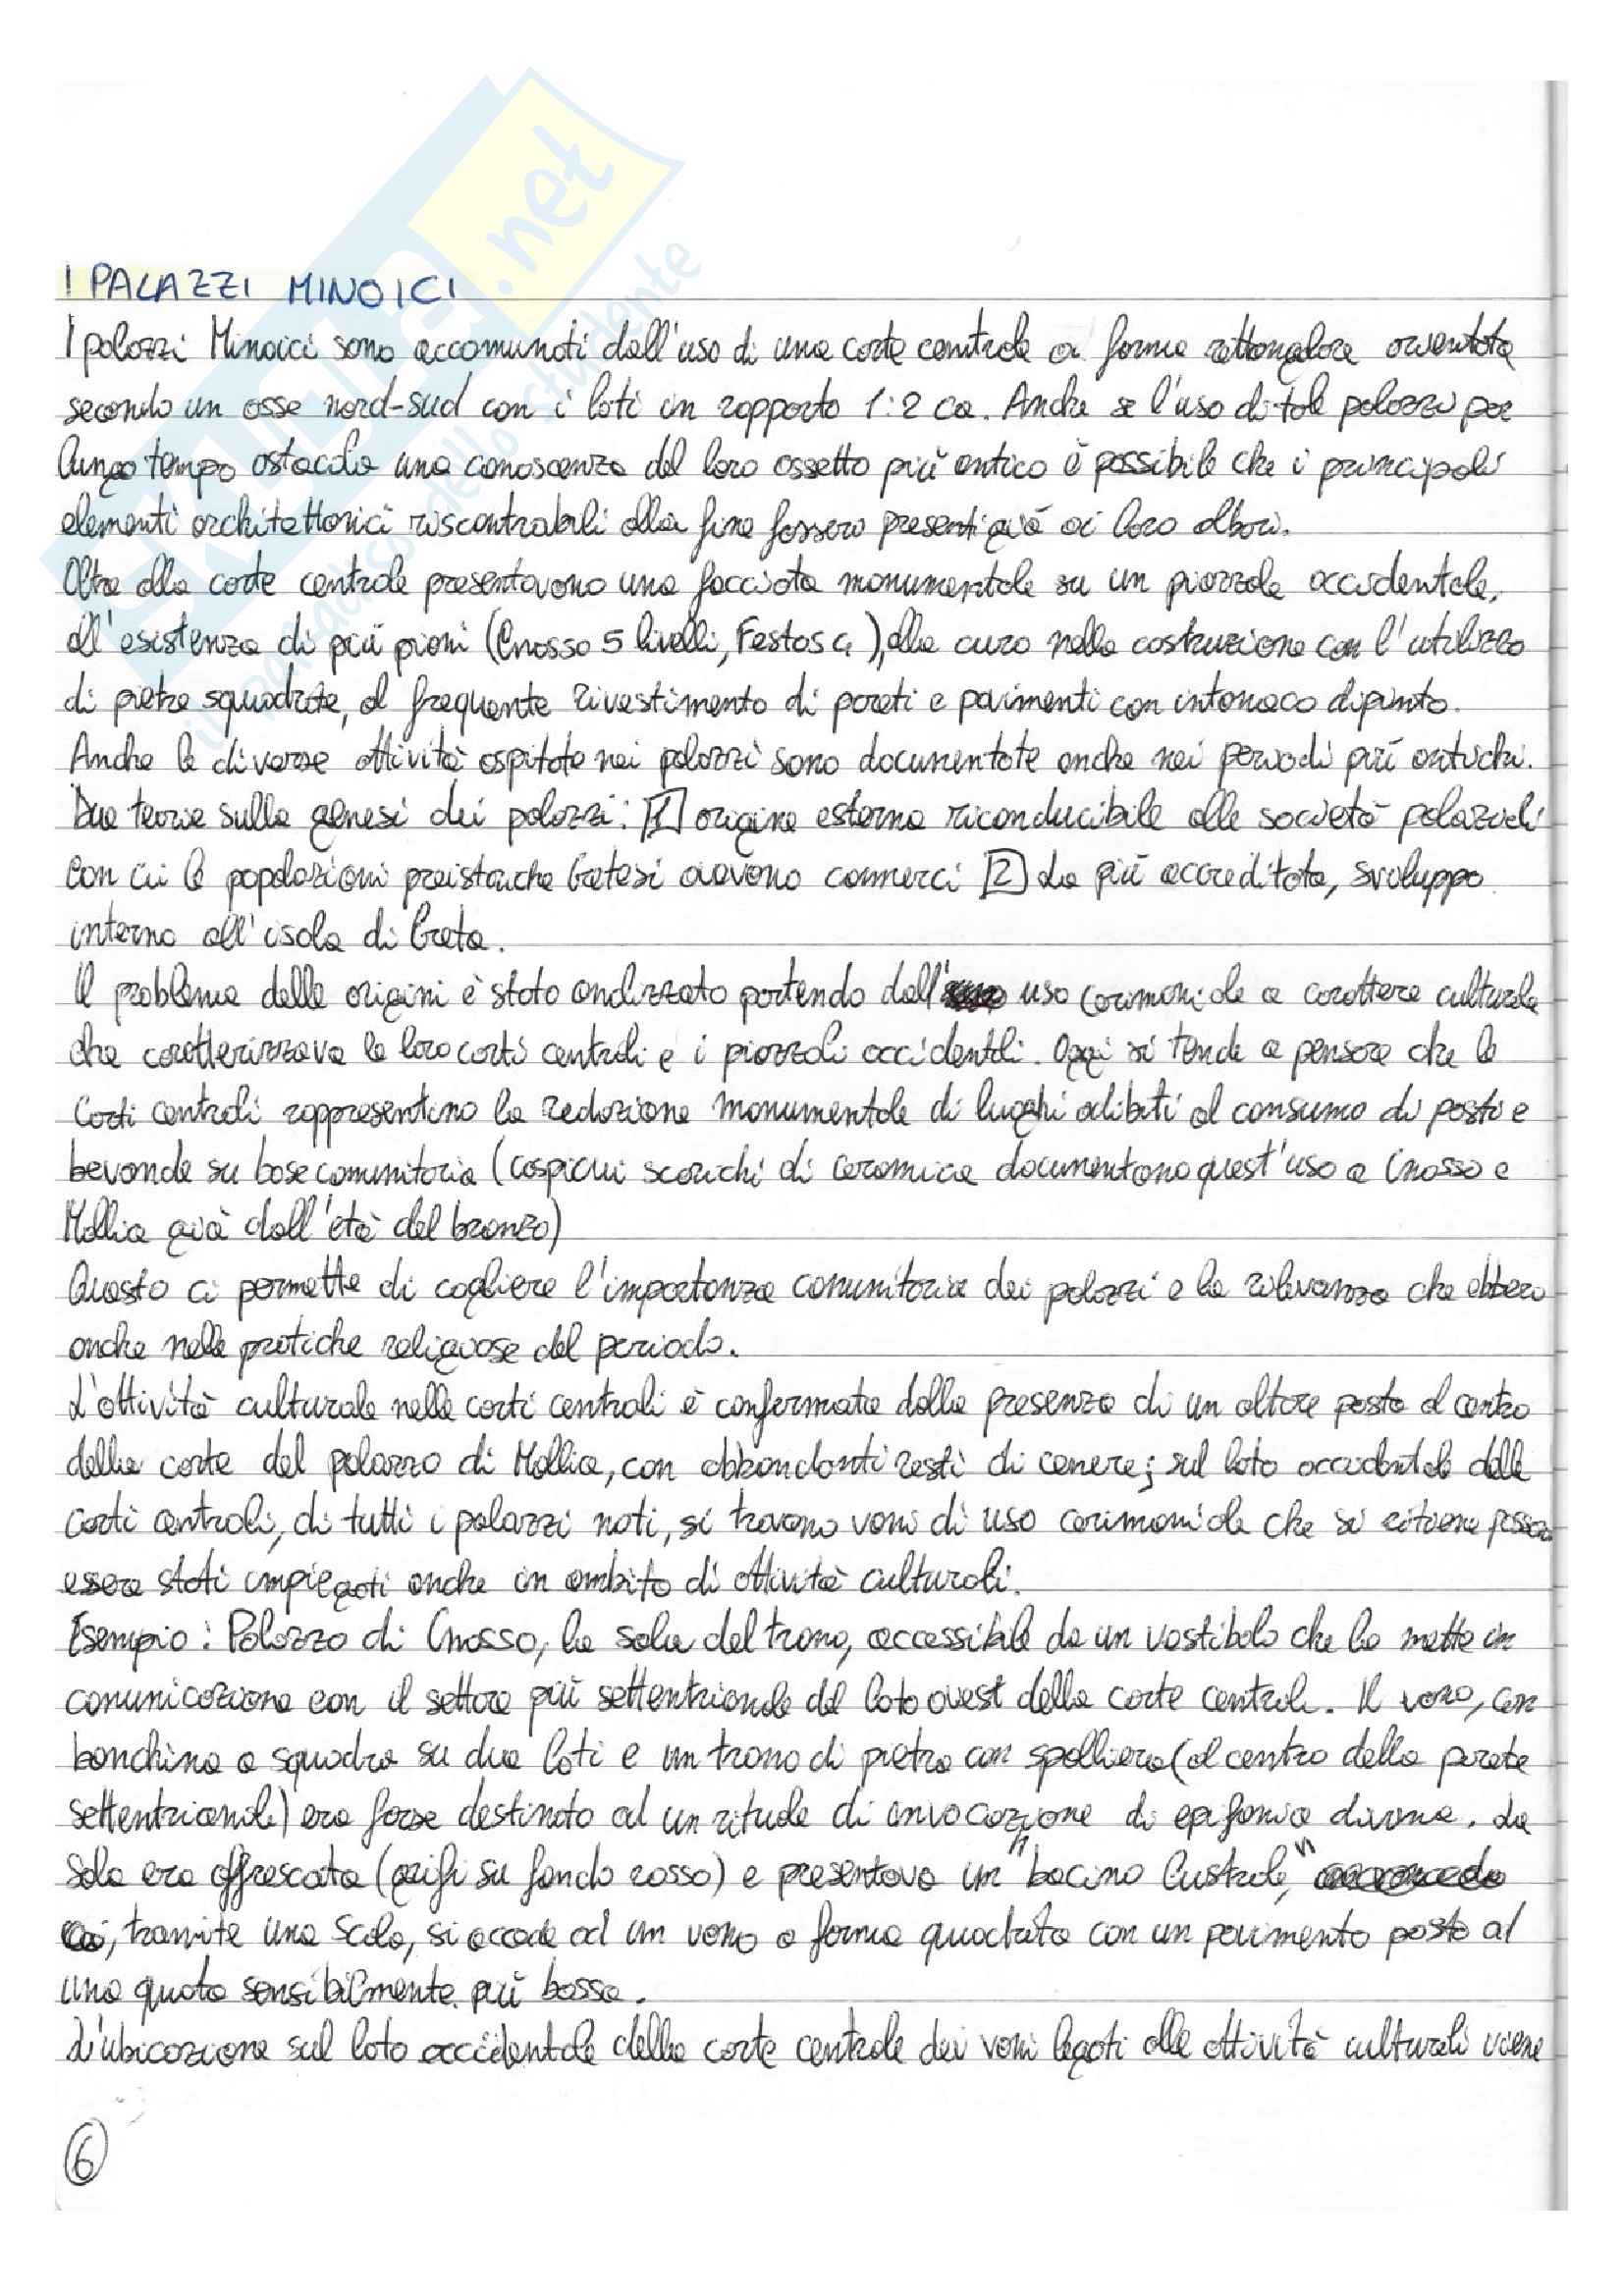 I PALAZZI MINOICI
I palazzi Minoici sono accomunati dall'uso di una corte centrale a forma rettangolare orientata
secondo un asse nord-sud con i lati in rapporto 1:2 ca. Anche se l'uso di tale palazzi per
lungo tempo ostacola una conoscenza del loro assetto più antico è possibile che i principali
elementi architettonici riscontrabili alla fine fossero presenti già ai loro albori.
Oltre alla corte centrale presentavano una facciata monumentale su un piazzale occidentale,
all'esistenza di più piani (Cnosso 5 livelli, Festos 4), alla cura nella costruzione con l'utilizzo
di pietre squadrate, al frequente rivestimento di pareti e pavimenti con intonaco dipinto.
Anche le diverse attività ospitate nei palazzi sono documentate anche nei periodi più antichi.
Due teorie sulla genesi dei palazzi: 1 origine esterna riconducibile alle società palaziali
con cui le popolazioni preistoriche Cretesi avevano commerci 2 La più accreditata, sviluppo
interno all'isola di Creta.
Il problema delle origini è stato analizzato partendo dall' uso cerimoniale a carattere culturale
che caratterizzava le loro corti centrali e i piazzali occidentali. Oggi si tende a pensare che le
Corti centrali rappresentino la redazione monumentale di luoghi adibiti al consumo di pasti e
bevande su base comunitaria (cospicui scarichi di ceramica documentano quest'uso a Cnosso e
Mallia già dall'età del bronzo)
Questo ci permette di cogliere l'importanza comunitaria dei palazzi e la rilevanza che ebbero
anche nelle pratiche religiose del periodo.
L'attività culturale nelle corti centrali è confermata dalla presenza di un altare posto al centro
della corte del palazzo di Mallia, con abbondanti resti di cenere; sul lato occidentale delle
Corti centrali, di tutti i palazzi noti, si trovano vani di uso cerimoniale che si ritiene possano
essere stati impiegati anche in ambito di attività culturali.
Esempio: Palazzo di Cnosso, la sala del trono, accessibile da un vestibolo che la mette in
comunicazione con il settore più settentrionale del lato ovest della corte centrale. Il vano, con
banchina a squadra su due lati e un trono di pietra con spalliera (al centro della parete
settentrionale) era forse destinato ad un rituale di invocazione di epifania divina. La
Sala era affrescata (grifi su fondo rosso) e presentava un "bacino lustrale,"
, tramite una scala, si accede ad un vano a forma quadrata con un pavimento posto ad
una quota sensibilmente più bassa.
L'ubicazione sul lato occidentale della corte centrale dei vani legati alle attività culturali viene
6
SKUOLA.net
il paradiso dello studente